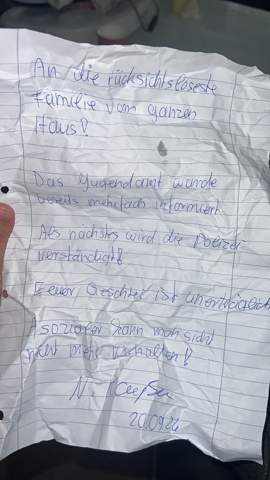 An die rücksichtsloseste
Familie vom ganzen
Haus!
Das Jugendamt wurde
bereits mehrfach informiert.
Als nächstes wird die Polizei
verständigt!
Euer Geschrei ist unerträglich
Asozialer kann man sich
nicht mehr verhalten!
N.
20.09.26